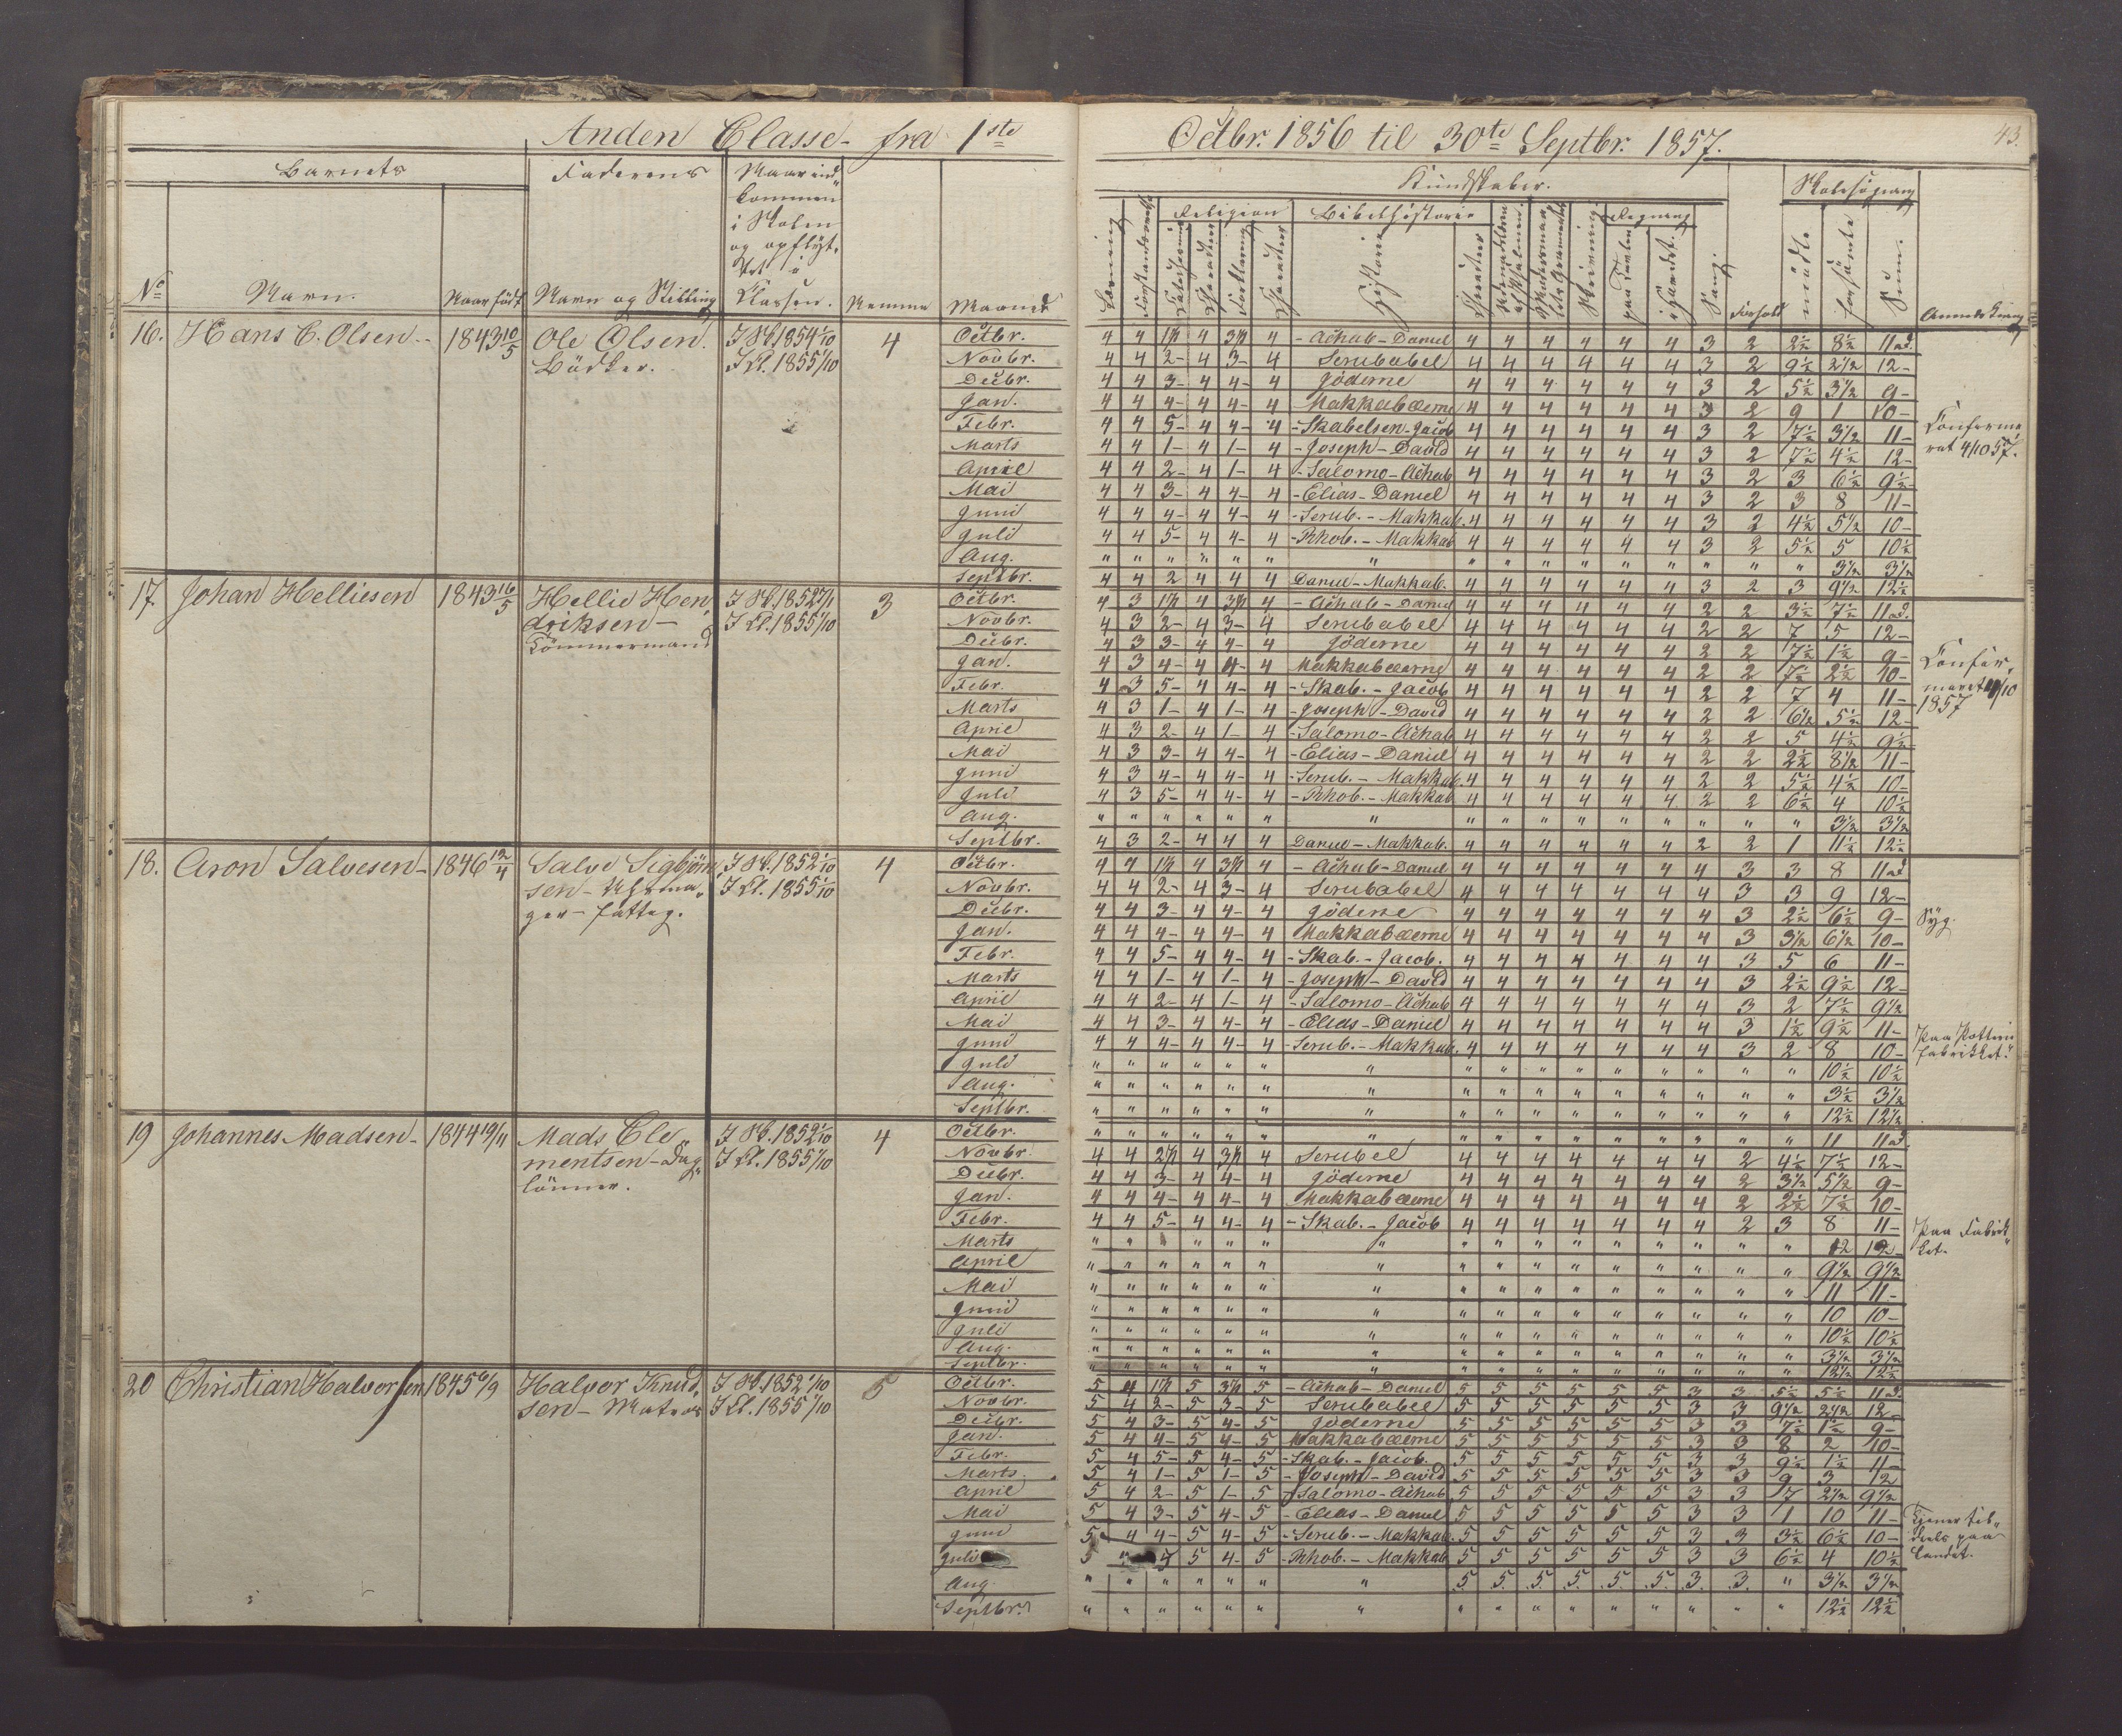 Anden Classe fra 1ste Octbr. 1856 til 30te Septbr. 1857.
43.
Barnets
Faderens
Naar ind-
kommen
i Skolen
og opflyt-
tet i
Klassen.
No
Navn.
Naar født
Navn og Stilling
Nemme
Maaned
Kundskaber.
Skolesøgning
Religion
Bibelhistorie
Regning
Historie
Sang.
Forhold
mødte
forsømte
Sum.
Anmerkning
16. Hans C. Olsen. 1843 10/5 Ole Olsen. I Sk. 1854 1/10 4
Bødker. I Kl. 1855 1/10
Octbr. 4 4 1½ 4 3½ 4 - Achab - Daniel 4 4 4 4 4 4 3 2 2½ 8½ 11 ad.
Novbr. 4 4 2- 4 3- 4 Serubabel 4 4 4 4 4 4 3 2 9½ 2½ 12-
Decbr. 4 4 3- 4 4- 4 Jöderne 4 4 4 4 4 4 3 2 5½ 3½ 9-
Jan. 4 4 4- 4 4- 4 Makkabæerne 4 4 4 4 4 4 3 2 9 1 10-
Febr. 4 4 5- 4 4- 4 - Skabelsen - Jacob 4 4 4 4 4 4 3 2 7½ 3½ 11-
Marts 4 4 1- 4 1- 4 - Joseph - David 4 4 4 4 4 4 3 2 7½ 4½ 12-
April 4 4 2- 4 1- 4 - Salomo - Achab 4 4 4 4 4 4 3 2 3 6½ 9½-
Mai 4 4 3- 4 4- 4 - Elias - Daniel 4 4 4 4 4 4 3 2 3 8 11-
Juni 4 4 4- 4 4- 4 - Serub. - Makkab. 4 4 4 4 4 4 3 2 4½ 5½ 10-
Juli 4 4 5- 4 4- 4 - Rhob. - Makkab 4 4 4 4 4 4 3 2 5½ 5 10½
Aug. " " " " " " " " " " " " " " " " 3½ 3½
Septbr. 4 4 2 4 4 4 Daniel - Makkab. 4 4 4 4 4 4 3 2 3 9½ 12½
Konferme-
ret 4/10 57.
17 Johan Helliesen 1843 16/5 Hellie Hen- I Sk. 1852 27/1 3
driksen - I Kl. 1855 1/10
Tömmermand
Octbr. 4 3 1½ 4 3½ 4 - Achab - Daniel 4 4 4 4 4 4 2 2 3½ 7½ 11 ad.
Novbr. 4 3 2- 4 3- 4 Serubabel 4 4 4 4 4 4 2 2 7 5 12-
Decbr. 4 3 3- 4 4- 4 Jöderne 4 4 4 4 4 4 2 2 7½ 1½ 9-
Jan. 4 3 4- 4 4- 4 Makkabæerne 4 4 4 4 4 4 2 2 7½ 2½ 10-
Febr. 4 3 5- 4 4- 4 - Skab. - Jacob 4 4 4 4 4 4 2 2 7 4 11-
Marts 4 3 1- 4 1- 4 - Joseph - David 4 4 4 4 4 4 2 2 6½ 5½ 12-
April 4 3 2- 4 1- 4 - Salomo - Achab 4 4 4 4 4 4 2 2 5 4½ 9½-
Mai 4 3 3- 4 4- 4 - Elias - Daniel 4 4 4 4 4 4 2 2 2½ 8½ 11-
Juni 4 3 4- 4 4- 4 - Serub. - Makkab. 4 4 4 4 4 4 2 2 5½ 4½ 10-
Juli 4 3 5- 4 4- 4 - Rhob. - Makkab 4 4 4 4 4 4 2 2 6½ 4 10½
Aug. " " " " " " " " " " " " " " " " 3½ 3½
Septbr. 4 3 2- 4 4 4 Daniel - Makkab. 4 4 4 4 4 4 2 2 1 11½ 12½
Konfir-
meret 4/10
1857
18. Aron Salvesen - 1846 12/4 Salve Sigbjörn- I Sk. 1852 1/10 4
sen - Uhrma- I Kl. 1855 1/10
ger - fattig.
Octbr. 4 4 1½ 4 3½ 4 - Achab - Daniel 4 4 4 4 4 4 4 3 3 8 11 ad
Novbr. 4 4 2- 4 3- 4 Serubabel 4 4 4 4 4 4 4 3 3 9 12-
Decbr. 4 4 3- 4 4- 4 Jöderne 4 4 4 4 4 4 4 3 2½ 6½ 9-
Jan. 4 4 4- 4 4- 4 Makkabæerne 4 4 4 4 4 4 4 3 3½ 6½ 10-
Febr. 4 4 5- 4 4- 4 - Skab. - Jacob. 4 4 4 4 4 4 4 3 5 6 11-
Marts 4 4 1- 4 1- 4 - Joseph - David 4 4 4 4 4 4 4 3 2½ 9½ 12-
April 4 4 2- 4 1- 4 - Salomo - Achab 4 4 4 4 4 4 4 3 2 7½ 9½
Mai 4 4 3- 4 4- 4 - Elias - Daniel 4 4 4 4 4 4 4 3 1½ 9½ 11-
Juni 4 4 4- 4 4- 4 - Serub. - Makkab. 4 4 4 4 4 4 4 3 2 8 10-
Juli " " " " " " " " " " " " " " " " 10½ 10½
Aug. " " " " " " " " " " " " " " " " 3½ 3½
Septbr. " " " " " " " " " " " " " " " " 12½ 12½
Syg.
Paa Potteri
fabrikket.
19 Johannes Madsen - 1844 19/11 Mads Cle I Sk. 1852 1/10 4
mentsen - Dag- I Kl. 1855 1/10
lönner.
Octbr. " " " " " " " " " " " " " " " " 11 11 ad
Novbr. 4 4 2½ 4 3½ 4 Serubel 4 4 4 4 4 4 4 2 4½ 7½ 12-
Decbr. 4 4 3- 4 4- 4 Jöderne 4 4 4 4 4 4 4 2 3½ 5½ 9-
Jan. 4 4 4- 4 4- 4 Makkabæerne 4 4 4 4 4 4 4 2 2½ 7½ 10-
Febr. 4 4 5- 4 4- 4 - Skab. - Jacob 4 4 4 4 4 4 4 2 3 8 11-
Marts " " " " " " " " " " " " " " " 12 12-
April " " " " " " " " " " " " " " " " 9½ 9½
Mai " " " " " " " " " " " " " " " " 11 11-
Juni " " " " " " " " " " " " " " " " 10 10-
Juli " " " " " " " " " " " " " " " " 10½ 10½
Aug. " " " " " " " " " " " " " " " " 3½ 3½
Septbr. " " " " " " " " " " " " " " " " 12½ 12½
Paa Fabrik-
ket.
20 Christian Halvorsen 1845 6/9 Halvor Knud- I Sk. 1852 1/10 5
sen - Matros I Kl. 1855 1/10
Octbr. 5 4 1½ 5 3½ 5 - Achab - Daniel 5 5 5 5 5 5 3 3 5½ 5½ 11 ad.
Novbr. 5 4 2- 5 3- 5 Serubabel 5 5 5 5 5 5 3 3 9½ 2½ 12-
Decbr. 5 4 3- 5 4- 5 Jöderne 5 5 5 5 5 5 3 3 7½ 1½ 9-
Jan. 5 4 4- 5 4- 5 Makkabæerne 5 5 5 5 5 5 3 3 8 2 10-
Febr. 5 4 5- 5 4- 5 - Skab. - Jacob. 5 5 5 5 5 5 3 3 9½ 1½ 11-
Marts 5 4 1- 5 1- 5 - Joseph - David 5 5 5 5 5 5 3 3 9 3 12
April 5 4 2- 5 1- 5 - Salomo - Achab 5 5 5 5 5 5 3 3 7 2½ 9½
Mai 5 4 3- 5 4- 5 - Elias - Daniel 5 5 5 5 5 5 3 3 1 10 11-
Juni 5 4 4- 5 4- 5 - Serub. - Makkab. 5 5 5 5 5 5 3 3 3½ 6½ 10-
Juli 5 5 4- 5 - Rhob. - Makkab 5 5 5 5 5 5 3 3 6½ 4 10½
Aug. " " " " " " " 5. 5. 5. 5. 5. 5. 3. 3. " 3½ 3½
Septbr. " " " " " " " " " " " " " " " " 12½ 12½
Tjener til-
deels paa
Landet.